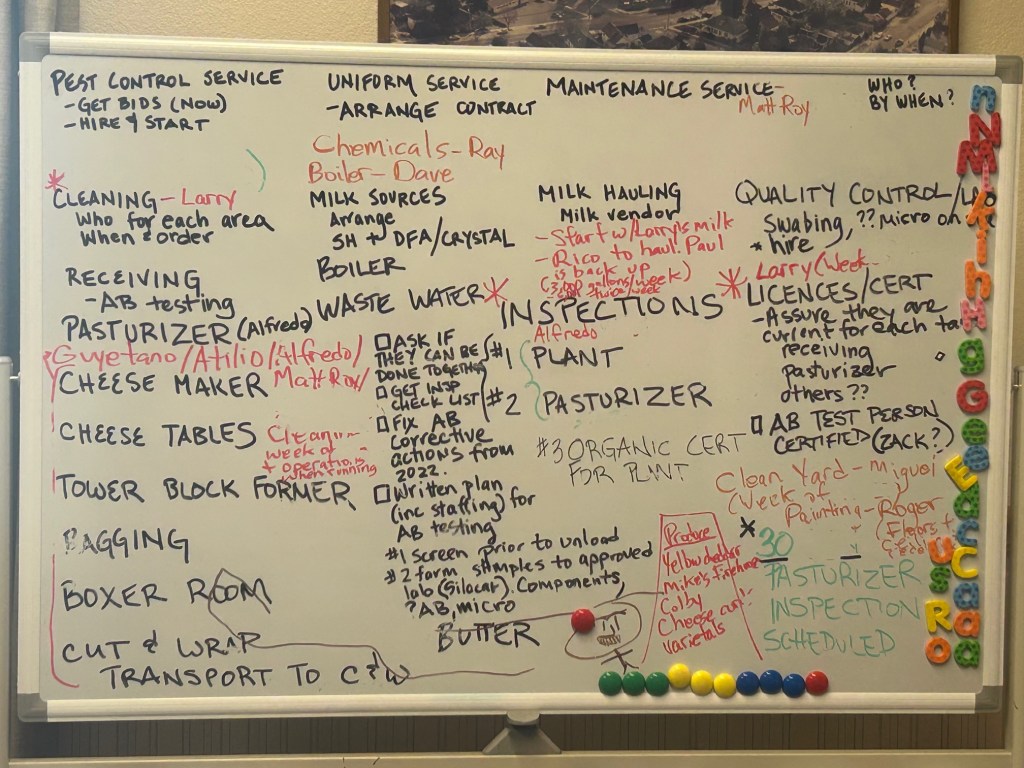 PEST CONTROL SERVICE
- GET BIDS (NOW)
- HIRE & START
UNIFORM SERVICE
- ARRANGE CONTRACT
MAINTENANCE SERVICE-
Matt Roy
WHO?
BY WHEN?
Chemicals - Ray
Boiler - Dave
* CLEANING - Larry
Who for each area
When & order
RECEIVING
- AB testing
PASTURIZER (Alfredo)
Guyetano/Atilio/Alfredo/
Matt Roy/
CHEESE MAKER
CHEESE TABLES
week of
+ operations
when running
TOWER BLOCK FORMER
BAGGING
BOXER ROOM
CUT & WRAP
TRANSPORT TO C&W
MILK SOURCES
Arrange
SH + DFA/CRYSTAL
BOILER
WASTE WATER
MILK HAULING
Milk vendor
- Start w/Larry's milk
- Rico to haul. Paul
is back up
gallons/week)
twice/week
* INSPECTIONS
Alfredo
□ ASK IF
THEY CAN BE
DONE TOGETHER
□ GET INSP
CHECK LIST
#1 PLANT
#2 PASTURIZER
#3 ORGANIC CERT
FOR PLANT
□ FIX AB
corrective
actions from
2022.
□ Written plan
(inc staffing) for
AB testing
#1 screen prior to unload
#2 farm samples to approved
lab (Silacar). Components,
? AB, micro
BUTTER
QUALITY CONTROL/
Swabing, ?? Micro
* hire
* Larry (Week
LICENCES/CERT
- Assure they are
current for each
receiving
Pasturizer
others ??
□ AB TEST PERSON
CERTIFIED (ZACK?)
Clean Yard -
(Week of
Painting - Roger
(Floors +
Produce
Yellow cheddar
Mike's firehouse
Colby
Cheese
varietals
* 30
PASTURIZER
INSPECTION
SCHEDULED